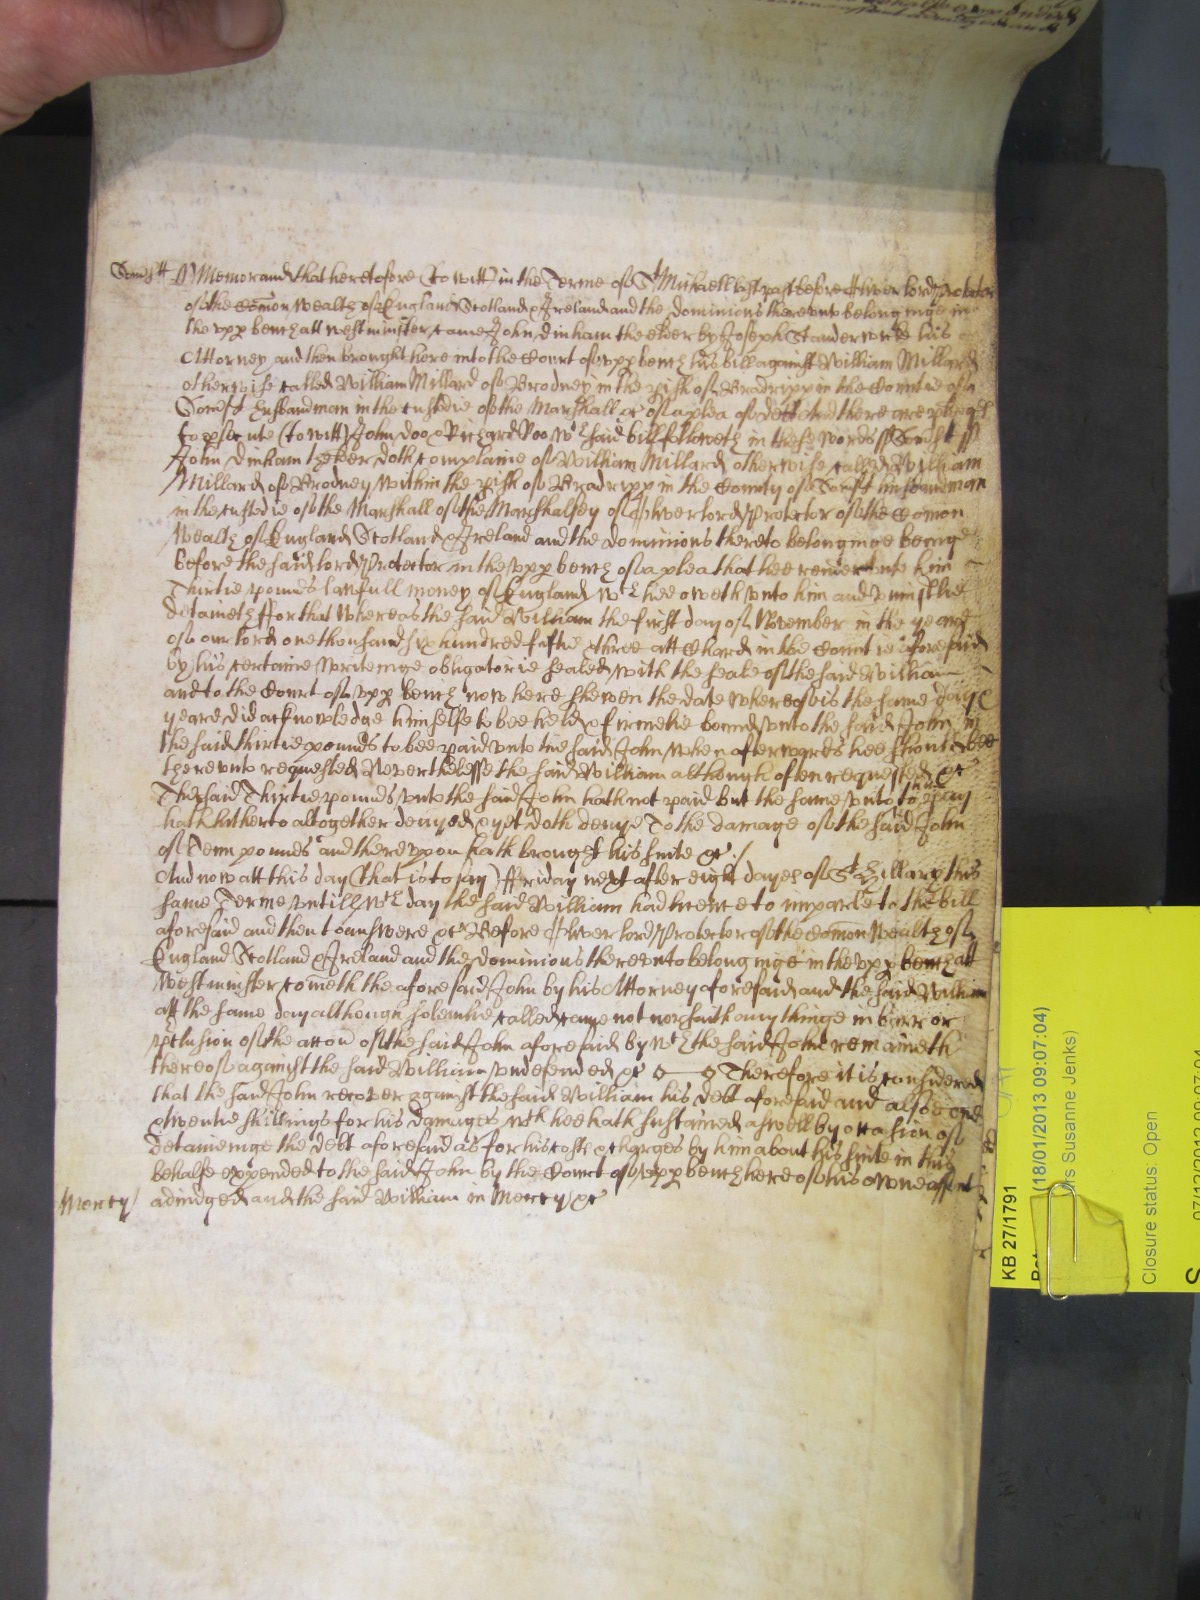 Somst ss Memorand that heretofore (to witt) in the Terme of St Michaell last past before Oliver lord Protector
of the Comon Wealth of England Scotland & Ireland and the dominions thereunto belonginge in
the upp bench att westminster came John Dinham the elder by Joseph Standerwicke his
Attorney and then brought here into the Court of upp bench his bill against William Millard
otherwise called William Millard of Brodney in the pish of Bradripp in the Countie of
Somst husbandman in the custodie of the Marshall &c of a plea of debt And there are pledges
to psecute (to witt) John Doo & Richard Roo wch said bill followeth in these words ss Somst ss
John Dinham thelder doth complaine of William Millard otherwise called William
Millard of Brodney within the pish of Bradripp in the County of Somst husbandman
in the custodie of the Marshall of the Marshalsey of Oliver lord Protector of the Comon
Wealth of England Scotland & Ireland and the dominions thereto belonginge beinge
before the said lord Protector in the upp bench of a plea that hee render unto him
Thirtie pounds lawfull money of England wch hee oweth unto him and uniustlie
detaineth ffor that Whereas the said William the first day of November in the yeare
of our lord one thousand six hundred fiftie & three att Chard in the Countie aforesaid
by his certaine writeinge obligatorie sealed with the seale of the said William
and to the Court of upp bench now here shewen the date whereof is the same day &
yeare did acknowledge himselfe to bee held & firmelie bound unto the said John in
the said thirtie pounds to bee paid unto the said John when afterwards hee should bee
thereunto requested Neverthelesse the said William although often requested &c
The said Thirtie pounds unto the said John hath not paid but the same unto him to pay
hath hitherto altogether denyed & yet doth denye To the damage of the said John
of Tenn pounds and thereupon hath brought his suite &c ./
And now att this day (that is to say) ffriday next after eight dayes of St Hillary this
same Terme untill wch day the said William had licence to imparle to the bill
aforesaid and then to answere &c Before Oliver lord Protector of the Comon Wealth of
England Scotland & Ireland and the dominions thereunto belonginge in the upp bench att
Westminster cometh the aforesaid John by his Attorney aforesaid and the said William
att the same day although solemlie called came not nor saith any thinge in barr or
pclusion of the accon of the said John aforesaid by wch the said John remaineth
thereof against the said William undefended &c Therefore it is considered
that the said John recover against the said William his debt aforesaid and alsoe one
& twentie shillings for his damages wch hee hath sustained aswell by occasion of
detaineinge the debt aforesaid as for his costs & charges by him about his suite in this
behalfe expended to the said John by the Court of upp bench here of his owne assent
Mercy/ adiudged and the said William in Mercy &c
KB 27/1791
(18/01/2013 09:07:04)
rs Susanne Jenks)
Closure status: Open